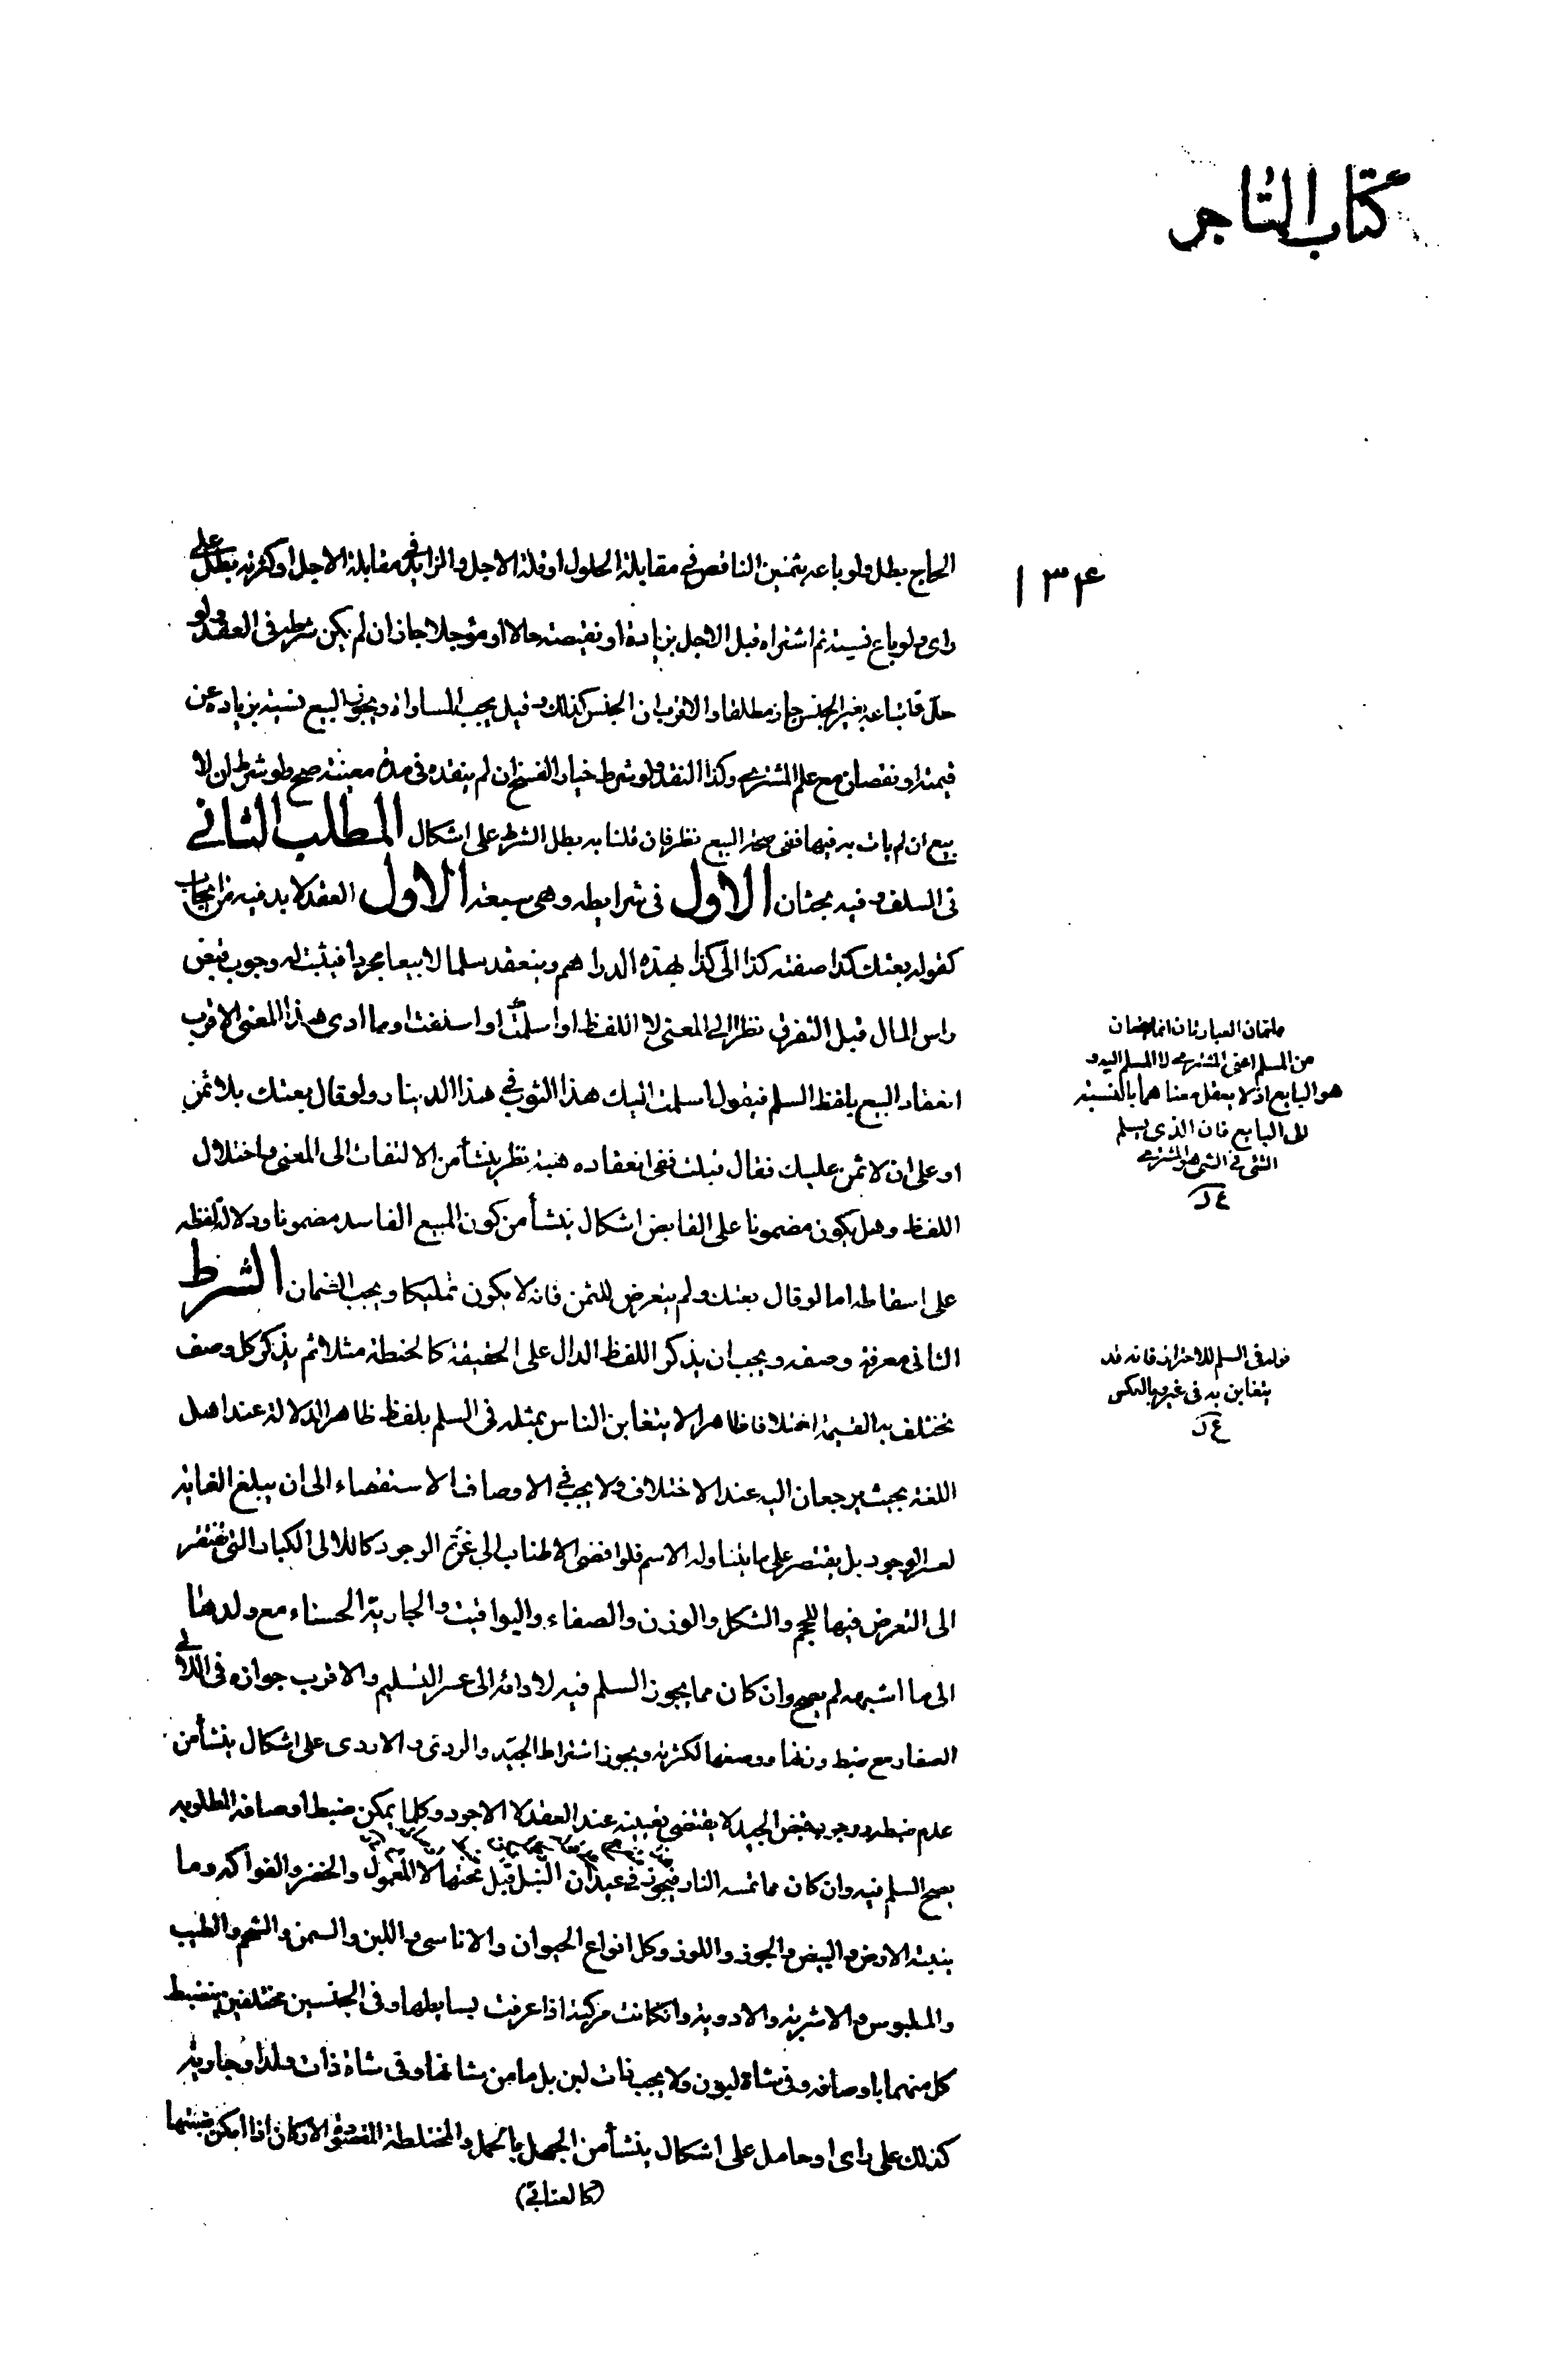 كتاب المتاجر
١٣۴
الحاج بطل ولو باعه بثمنين الناقص في مقابلة الحلول او قلة الاجل والزايد في مقابلة الاجل او كثرته بطل على
راى ولو باع نسيئة ثم اشتراه قبل الاجل بزيادة او نقيصة حالا او مؤجلا جاز ان لم يكن شرطه فى العقد ولو
حل فابتاعه بغير الجنس جاز مطلقا والاقرب ان الجنس كذلك وقيل يجب المساواة ويجوز البيع نسيئة بزيادة عن
قيمته او نقصان مع علم المشترى وكذا النقد ولو شرط خيار الفسخ ان لم ينقده فى مدة معينة صح ولو شرط ان لا
بيع ان لم يات به فيها ففى صحة البيع نظر فان قلنا به بطل الشرط على اشكال المطلب الثانى
فى السلف وفيه بحثان الاول فى شرايطه وهى سبعة الاول العقد لا بد فيه من ايجاب
كقوله بعتك كذا صفته كذا الى كذا بهذه الدراهم وينعقد سلما لا بيعا مجردا فيثبت له وجوب قبض
راس المال قبل التفرق نظرا الى المعنى لا اللفظ او اسلمت او اسلفت او ما ادى هذا المعنى الاقرب
انعقاد البيع بلفظ السلم فيقول اسلمت اليك هذا الثوب فى هذا الدينار ولو قال بعتك بلا ثمن
او على ان لا ثمن عليك فقال قبلت ففى انعقاده هبة نظر ينشأ من الالتفات الى المعنى واختلال
اللفظ وهل يكون مضمونا على القابض اشكال ينشأ من كون المبيع الفاسد مضمونا ودلالة لفظه
على اسقاطه اما لو قال بعتك ولم يتعرض للثمن فانه لا يكون تمليكا ويجب الضمان الشرط
الثانى معرفة وصفه ويجب ان يذكر اللفظ الدال على الحقيقة كالحنطة مثلا ثم يذكر كل وصف
تختلف به القيمة اختلافا ظاهرا لا يتغابن الناس بمثله فى السلم بلفظ ظاهر الدلالة عند اهل
اللغة بحيث يرجعان اليه عند الاختلاف ولا يجب فى الاوصاف الاستقصاء الى ان يبلغ الغاية
لعسر الوجود بل يقتصر على ما يتناوله الاسم فلو افضى الاطناب الى عزة الوجود كاللالى الكبار التى تفتقر
الى التعرض فيها للحجم والشكل والوزن والصفاء واليواقيت والجارية الحسناء مع ولدها
الى ما اشبهه لم يصح وان كان مما يجوز السلم فيه لادائه الى عسر التسليم والاقرب جوازه فى اللالى
الصغار مع ضبط وزنها ووصفها لكثرته ويجوز اشتراط الجيد والردى والاردى على اشكال ينشأ من
عدم ضبطه ووجوب قبض الجيد لا يقتضى تعيينه عند العقد لا الاجود وكلما يمكن ضبط اوصافه المطلوبة
يصح السلم فيه وان كان مما تمسه النار فيجوز فى عيدان النبل قبل نحتها لا المعمول والخضر والفواكه وما
ينبته الارض والبيض والجوز واللوز وكل انواع الحيوان والاناسى واللبن والسمن والشحم والطيب
والملبوس والاشربة والادوية وان كانت مركبة اذا عرفت بسايطها وفى الجنسين مختلفين ينضبط
كل منهما باوصافه وفى شاة لبون ولا يجب ذات لبن بل ما من شانها وفى شاة ذات ولد او جارية
كذلك على راى او حامل على اشكال ينشأ من الجهل بالحمل والمختلطة المقصودة الاركان اذا امكن ضبطها
(كالعتابى)
من المسلم اعنى المشترى لا المسلم اليه و
هو البايع اذ لا يعقل معناهما بالنسبة
الى البايع فان الذى يسلم
الشئ فى الشئ هو المشترى
ع ل
قوله فى السلم للاحتراز فانه قد
يتغابن به فى غيره بالعكس
ع ل